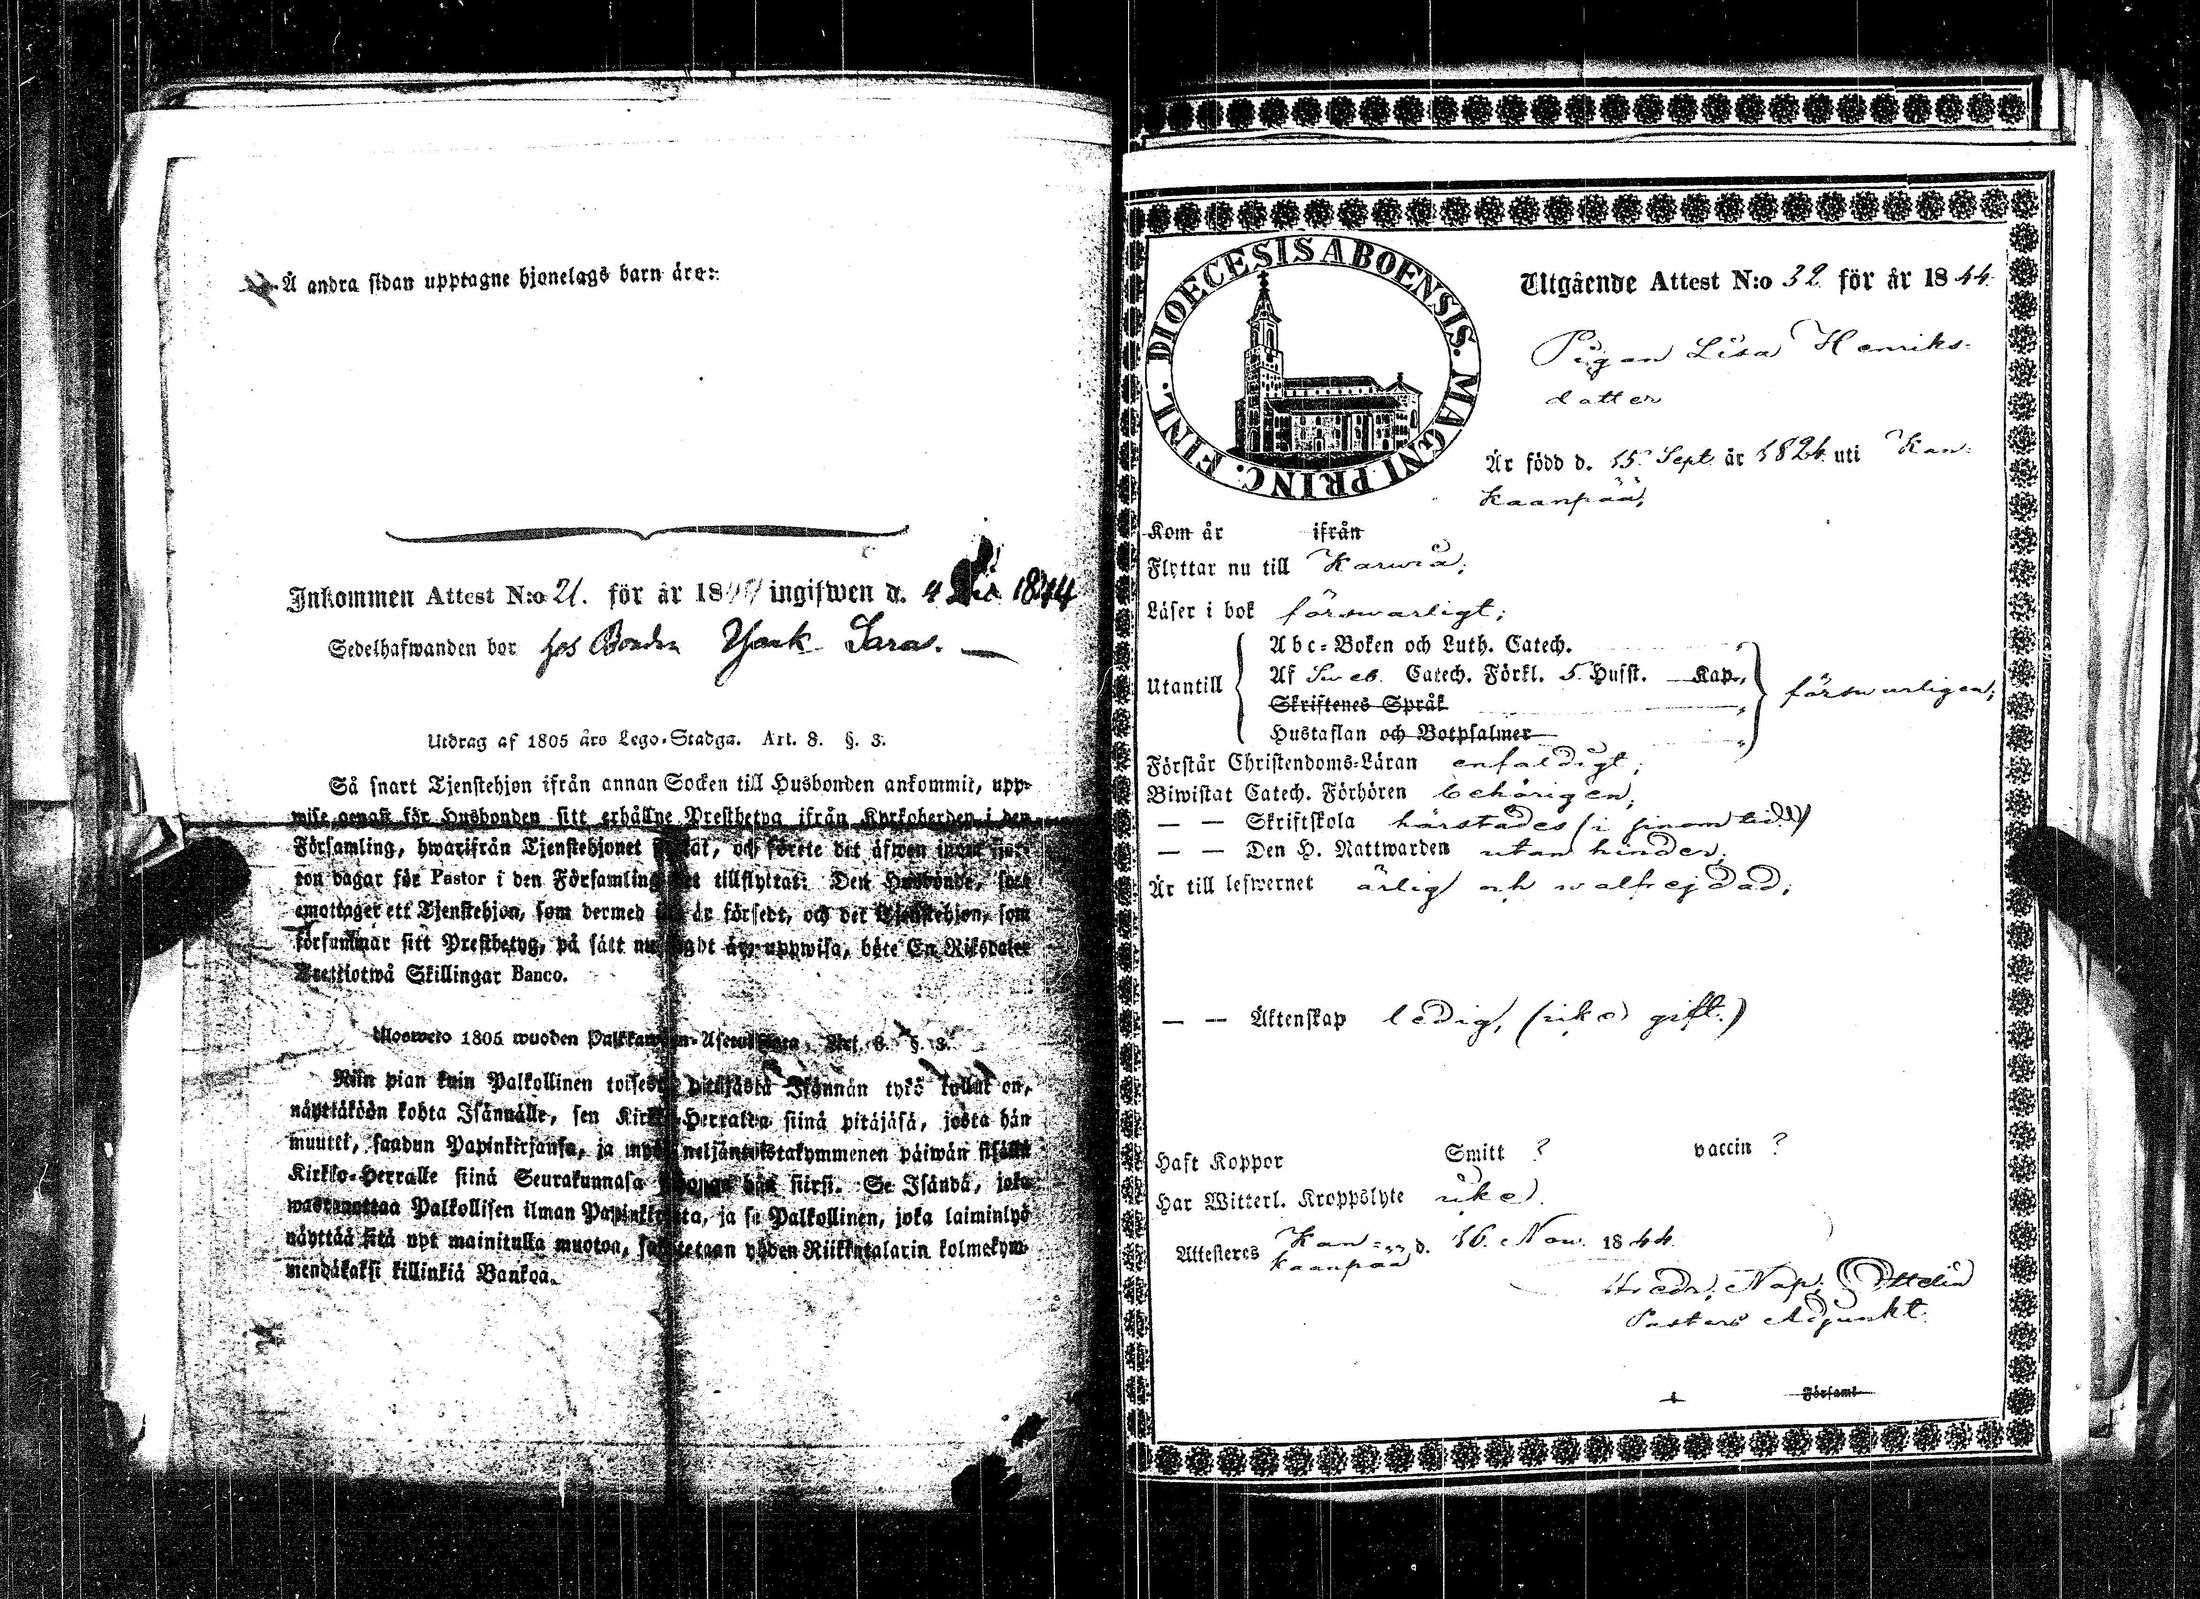 Å andra sidan upptagne hjonelags barn äro:
Inkommen Attest N:o 21. för år 1844 ingifwen d. 4 1844
Sedelhafwanden bor hos Bonden Sara.
Utdrag af 1805 års Lego-Stadga. Art. 8. §. 3.
Så snart Tjenstehjon ifrån annan Socken till Husbonden ankommit, upp-
wise genast för Husbonden sitt erhållne Prestbetyg ifrån Kyrkoherden i den
Församling, hwarifrån Tjenstehjonet och förete det äfwen inom fjor-
ton dagar för Pastor i den Församling tillflyttat: Den Husbonde, som
emottager ett Tjenstehjon, som dermed är försedt, och det Tjenstehjon, som
försummar sitt Prestbetyg, på sätt nu sagdt är, uppwisa, böte En Riksdaler
Trettiotwå Skillingar Banco.
Ulosweto 1805 wuoden Palkkawäen-Asetuksesta, Art. 8. §. 3.
Niin pian kuin Palkollinen toisesta pitäjästä Isännän tykö tullut on,
näyttäköön kohta Isännälle, sen Kirkko-Herralta siinä pitäjäsä, josta hän
muutti, saadun Papinkirjansa, ja myös neljäntoistakymmenen päiwän sisällä
Kirkko-Herralle siinä Seurakunnasa hän siirsi. Se Isändä, joka
wastanottaa Palkollisen ilman Papinkirjata, ja se Palkollinen, joka laiminlyö
näyttää sitä nyt mainitulla muotoa, sakotetaan yhden Riikintalarin kolmekym-
mendäkaksi killinkiä Bankoa.
DIOECESIS ABOENSIS. MAGNI PRINC. FINL.
Utgående Attest N:o 32 för år 1844.
Pigan Lisa Henriks-
dotter
Är född d. 15 Sept år 1824 uti Kan-
kaanpää;
Kom år ifrån
Flyttar nu till Karwia;
Läser i bok förswarligt;
Abc-Boken och Luth. Catech.
Utantill Af Sweb. Catech. Förkl. 5 Hufst. Kap. förswarligen;
Skriftenes Språk
Hustaflan och Botpsalmer
Förstår Christendoms-Läran enfaldigt;
Biwistat Catech. Förhören behörigen;
— — Skriftskola härstädes (i
— — Den H. Nattwarden utan hinder;
Är till lefwernet ärlig och wälfrejdad;
— — Äktenskap ledig, (icke gift.)
Haft Koppor Smitt ? vaccin ?
Har Witterl. Kroppslyte icke.
Attesteres Kan-
kaanpää d. 16. Nov. 1844.
Fredr. Nap.
Pastors Adjunkt.
i Församl